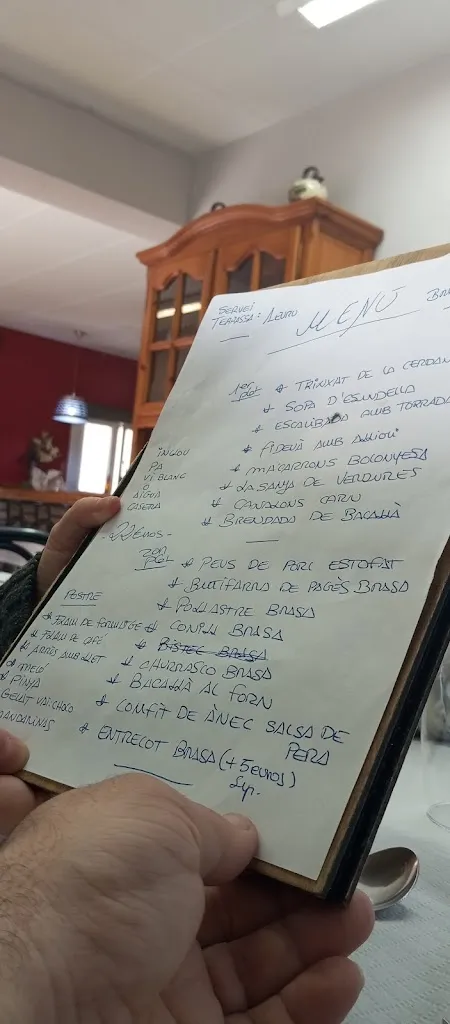 SERVEI
TERRASSA: 1 EURO
MENÚ
BRA
1er plat
* TRINXAT DE LA CERDAN
* SOPA D'ESCUDELLA
* ESCALIBADA AMB TORRADA
* FIDEUÀ AMB ALLIOLI
* MACARRONS BOLONYESA
* LASANYA DE VERDURES
* CANALONS CARN
* BRENDADA DE BACALLÀ
INCLOU
PA
VI BLANC
O
AIGUA
CASERA
- 22 EUROS -
2on plat
* PEUS DE PORC ESTOFAT
* BUTIFARRA DE PAGÈS BRASA
* POLLASTRE BRASA
* CONILL BRASA
* BISTEC BRASA
* CHURRASCO BRASA
* BACALLÀ AL FORN
* CONFIT DE ÀNEC SALSA DE
PERA
* ENTRECOT BRASA (+5 EUROS)
Sup.
POSTRE
* FLAM DE CAFÈ
* ARRÒS AMB LLET
* MELÓ
* PINYA
GELAT VAI: CHOCO
MANDARINAS